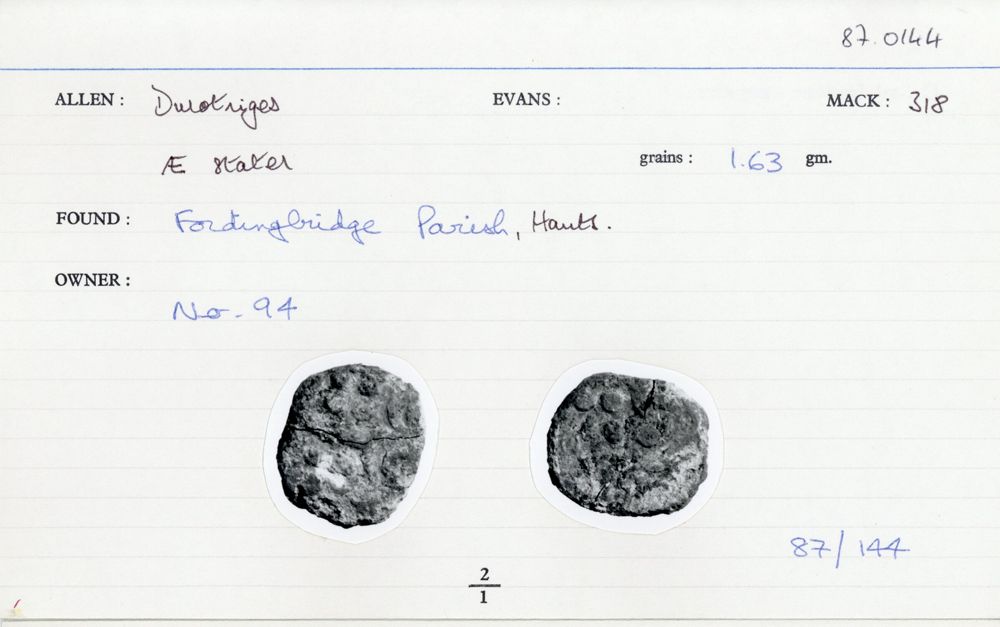 87.0144
ALLEN: Durotriges EVANS: MACK: 318
Æ stater grains: 1.63 gm.
FOUND: Fordingbridge Parish, Hants.
OWNER:
No. 94
87/144
2
1